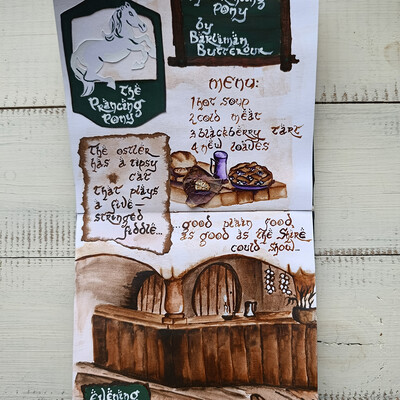 the
Prancing
Pony
Pony
by
Barliman
Butterbur
Menu:
1 hot soup
2 cold meat
3 blackberry tart
4 new loaves
The ostler
has a tipsy
cat
that plays
a five-
stringed
fiddle...
...good plain food,
as good as the Shire
could show...
evening